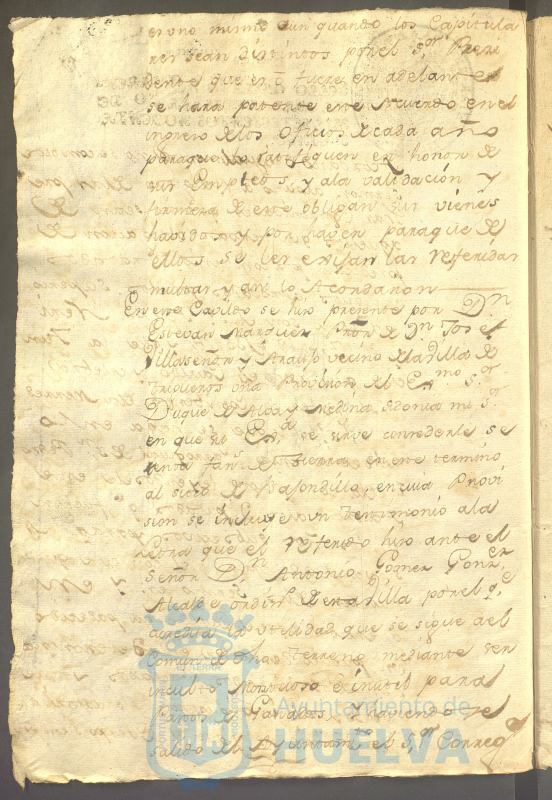 eruno mismo aun quando los Capitula
res sean distintos por el S.or Presi
dente que en fuere en adelante
se hara patente este Acuerdo en el
ingreso de los Oficios de cada año
para que lo ratifiquen en honor de
sus Empleos, y ala validación y
firmeza de este obligan sus vienes
havidos y por haver para que de
ellos se les exijan las referidas
multas y asi lo Acordaron
En este Cavildo se hizo presente por D.n
Estevan Marquez de D.n Josef
Villaseñor y Arauso vecino de la villa de
Trigueros una Provision del Ex.mo S.or
Duque de Alba y Medina Sidonia mi S.or
en que su Ex.a se sirve concederle se
tenta fan.s de tierra en este termino
al sitio de, en cuia Provi
sion se incluie un Testimonio ala
Letra que el referido hizo ante el
Señor D.n Antonio Gomez Gonz.
Alcalde ordin.o de esta Villa por el q.e
acredita la utilidad que se sigue del
Comun de dho terreno mediante ser
inculto Montuoso e inutil para
Pastos de Ganados, y haviendo
salido del Ayuntam.to el S.or Correg
Ayuntamiento de
HUELVA